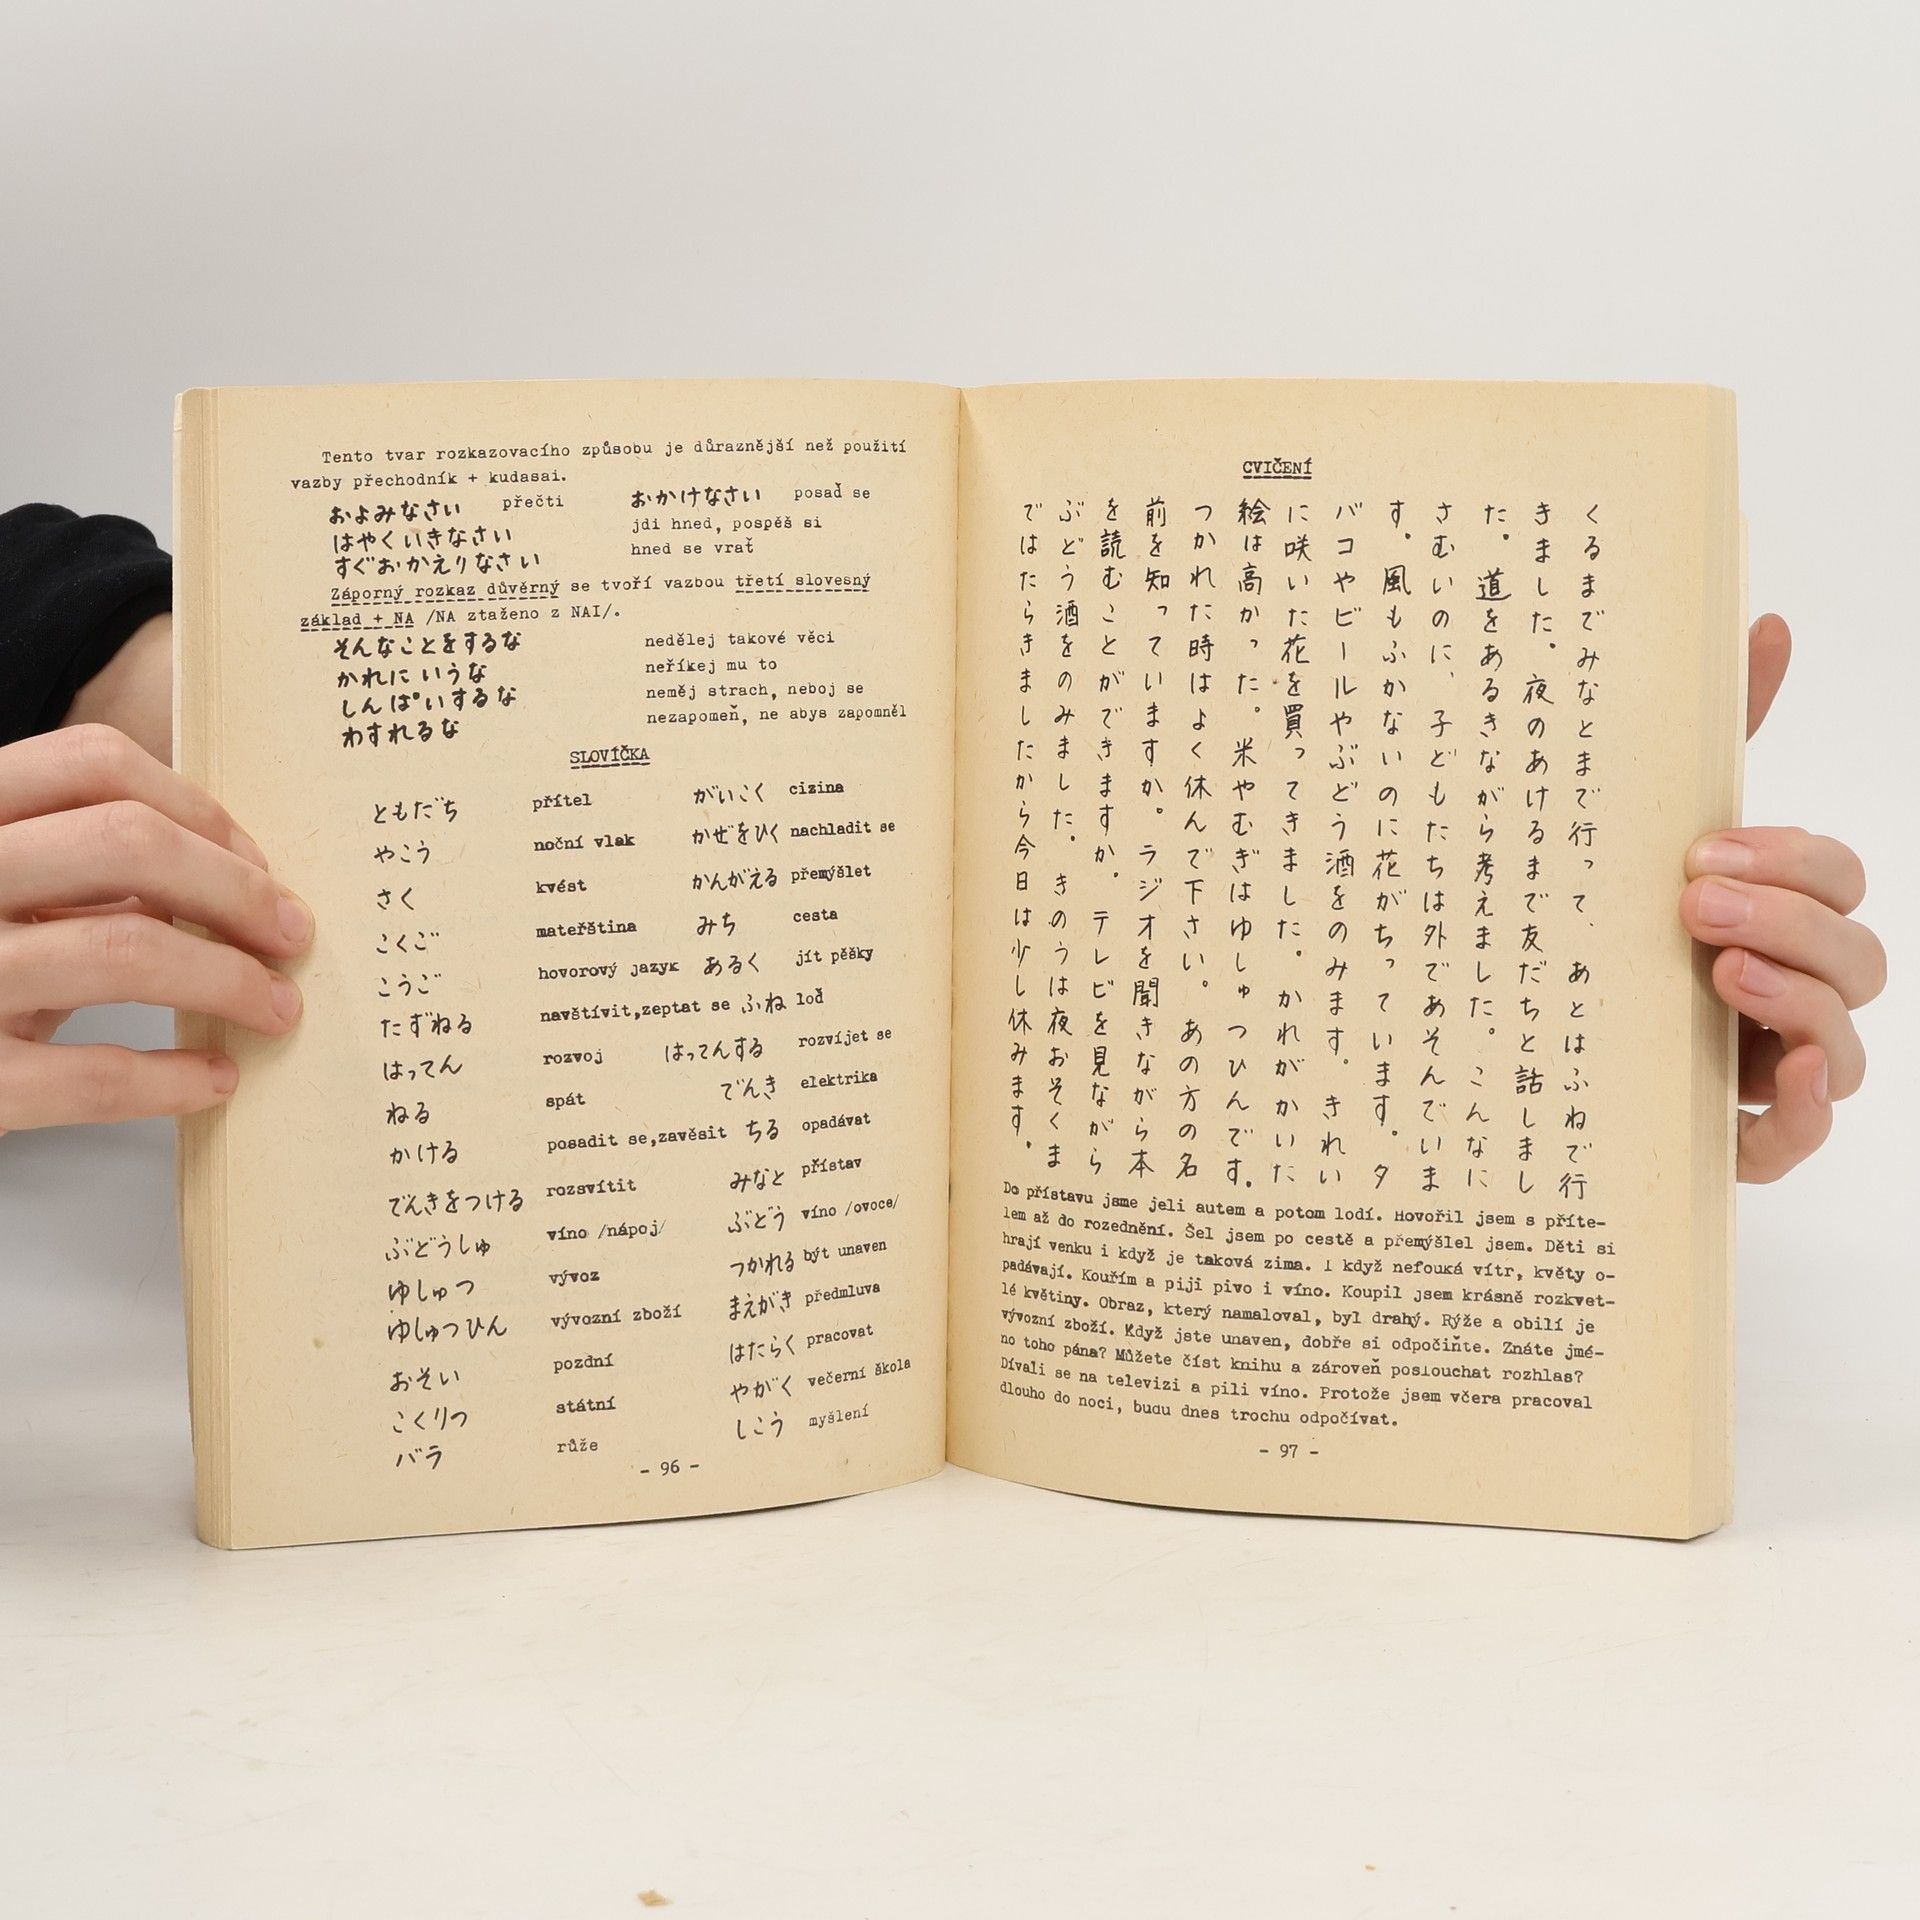 Tento tvar rozkazovacího způsobu je důraznější než použití
vazby přechodník + kudasai.
およみなさい přečti おかけなさい posaď se
はやくいきなさい jdi hned, pospěš si
すぐおかえりなさい hned se vrať
Záporný rozkaz důvěrný se tvoří vazbou třetí slovesný
základ + NA /NA ztaženo z NAI/.
そんなことをするな nedělej takové věci
かれにいうな neříkej mu to
しんぱいするな neměj strach, neboj se
わすれるな nezapomeň, ne abys zapomněl
SLOVÍČKA
ともだち přítel がいこく cizina
やこう noční vlak かぜをひく nachladit se
さく kvést かんがえる přemýšlet
こくご mateřština みち cesta
こうご hovorový jazyk あるく jít pěšky
たずねる navštívit,zeptat se ふね loď
はってん rozvoj はってんする rozvíjet se
ねる spát でんき elektrika
かける posadit se,zavěsit ちる opadávat
でんきをつける rozsvítit みなと přístav
ぶどうしゅ víno /nápoj/ ぶどう víno /ovoce/
ゆしゅつ vývoz つかれる být unaven
ゆしゅつひん vývozní zboží まえがき předmluva
おそい pozdní はたらく pracovat
こくりつ státní やがく večerní škola
バラ růže しこう myšlení
- 96 -
CVIČENÍ
くるまでみなとまで行って、あとはふねで行
きました。夜のあけるまで友だちと話しまし
た。道をあるきながら考えました。こんなに
さむいのに、子どもたちは外であそんでいま
す。風もふかないのに花がちっています。タ
バコやビールやぶどう酒をのみます。きれい
に咲いた花を買ってきました。かれがかいた
絵は高かった。米やむぎはゆしゅつひんです。
つかれた時はよく休んで下さい。あの方の名
前を知っていますか。ラジオを聞きながら本
を読むことができますか。テレビを見ながら
ぶどう酒をのみました。きのうは夜おそくま
ではたらきましたから今日は少し休みます。
Do přístavu jsme jeli autem a potom lodí. Hovořil jsem s příte-
lem až do rozednění. Šel jsem po cestě a přemýšlel jsem. Děti si
hrají venku i když je taková zima. I když nefouká vítr, květy o-
padávají. Kouřím a piji pivo i víno. Koupil jsem krásně rozkvet-
lé květiny. Obraz, který namaloval, byl drahý. Rýže a obilí je
vývozní zboží. Když jste unaven, dobře si odpočiňte. Znáte jmé-
no toho pána? Můžete číst knihu a zároveň poslouchat rozhlas?
Dívali se na televizi a pili víno. Protože jsem včera pracoval
dlouho do noci, budu dnes trochu odpočívat.
- 97 -